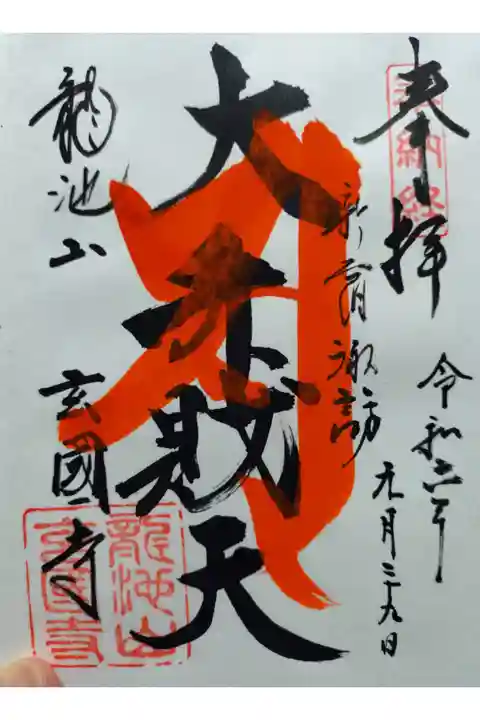 奉拝
奉納経
令和六年
元月二十九日
新宿諏訪
大弁財天
龍池山
玄國寺
龍池山
玄國寺